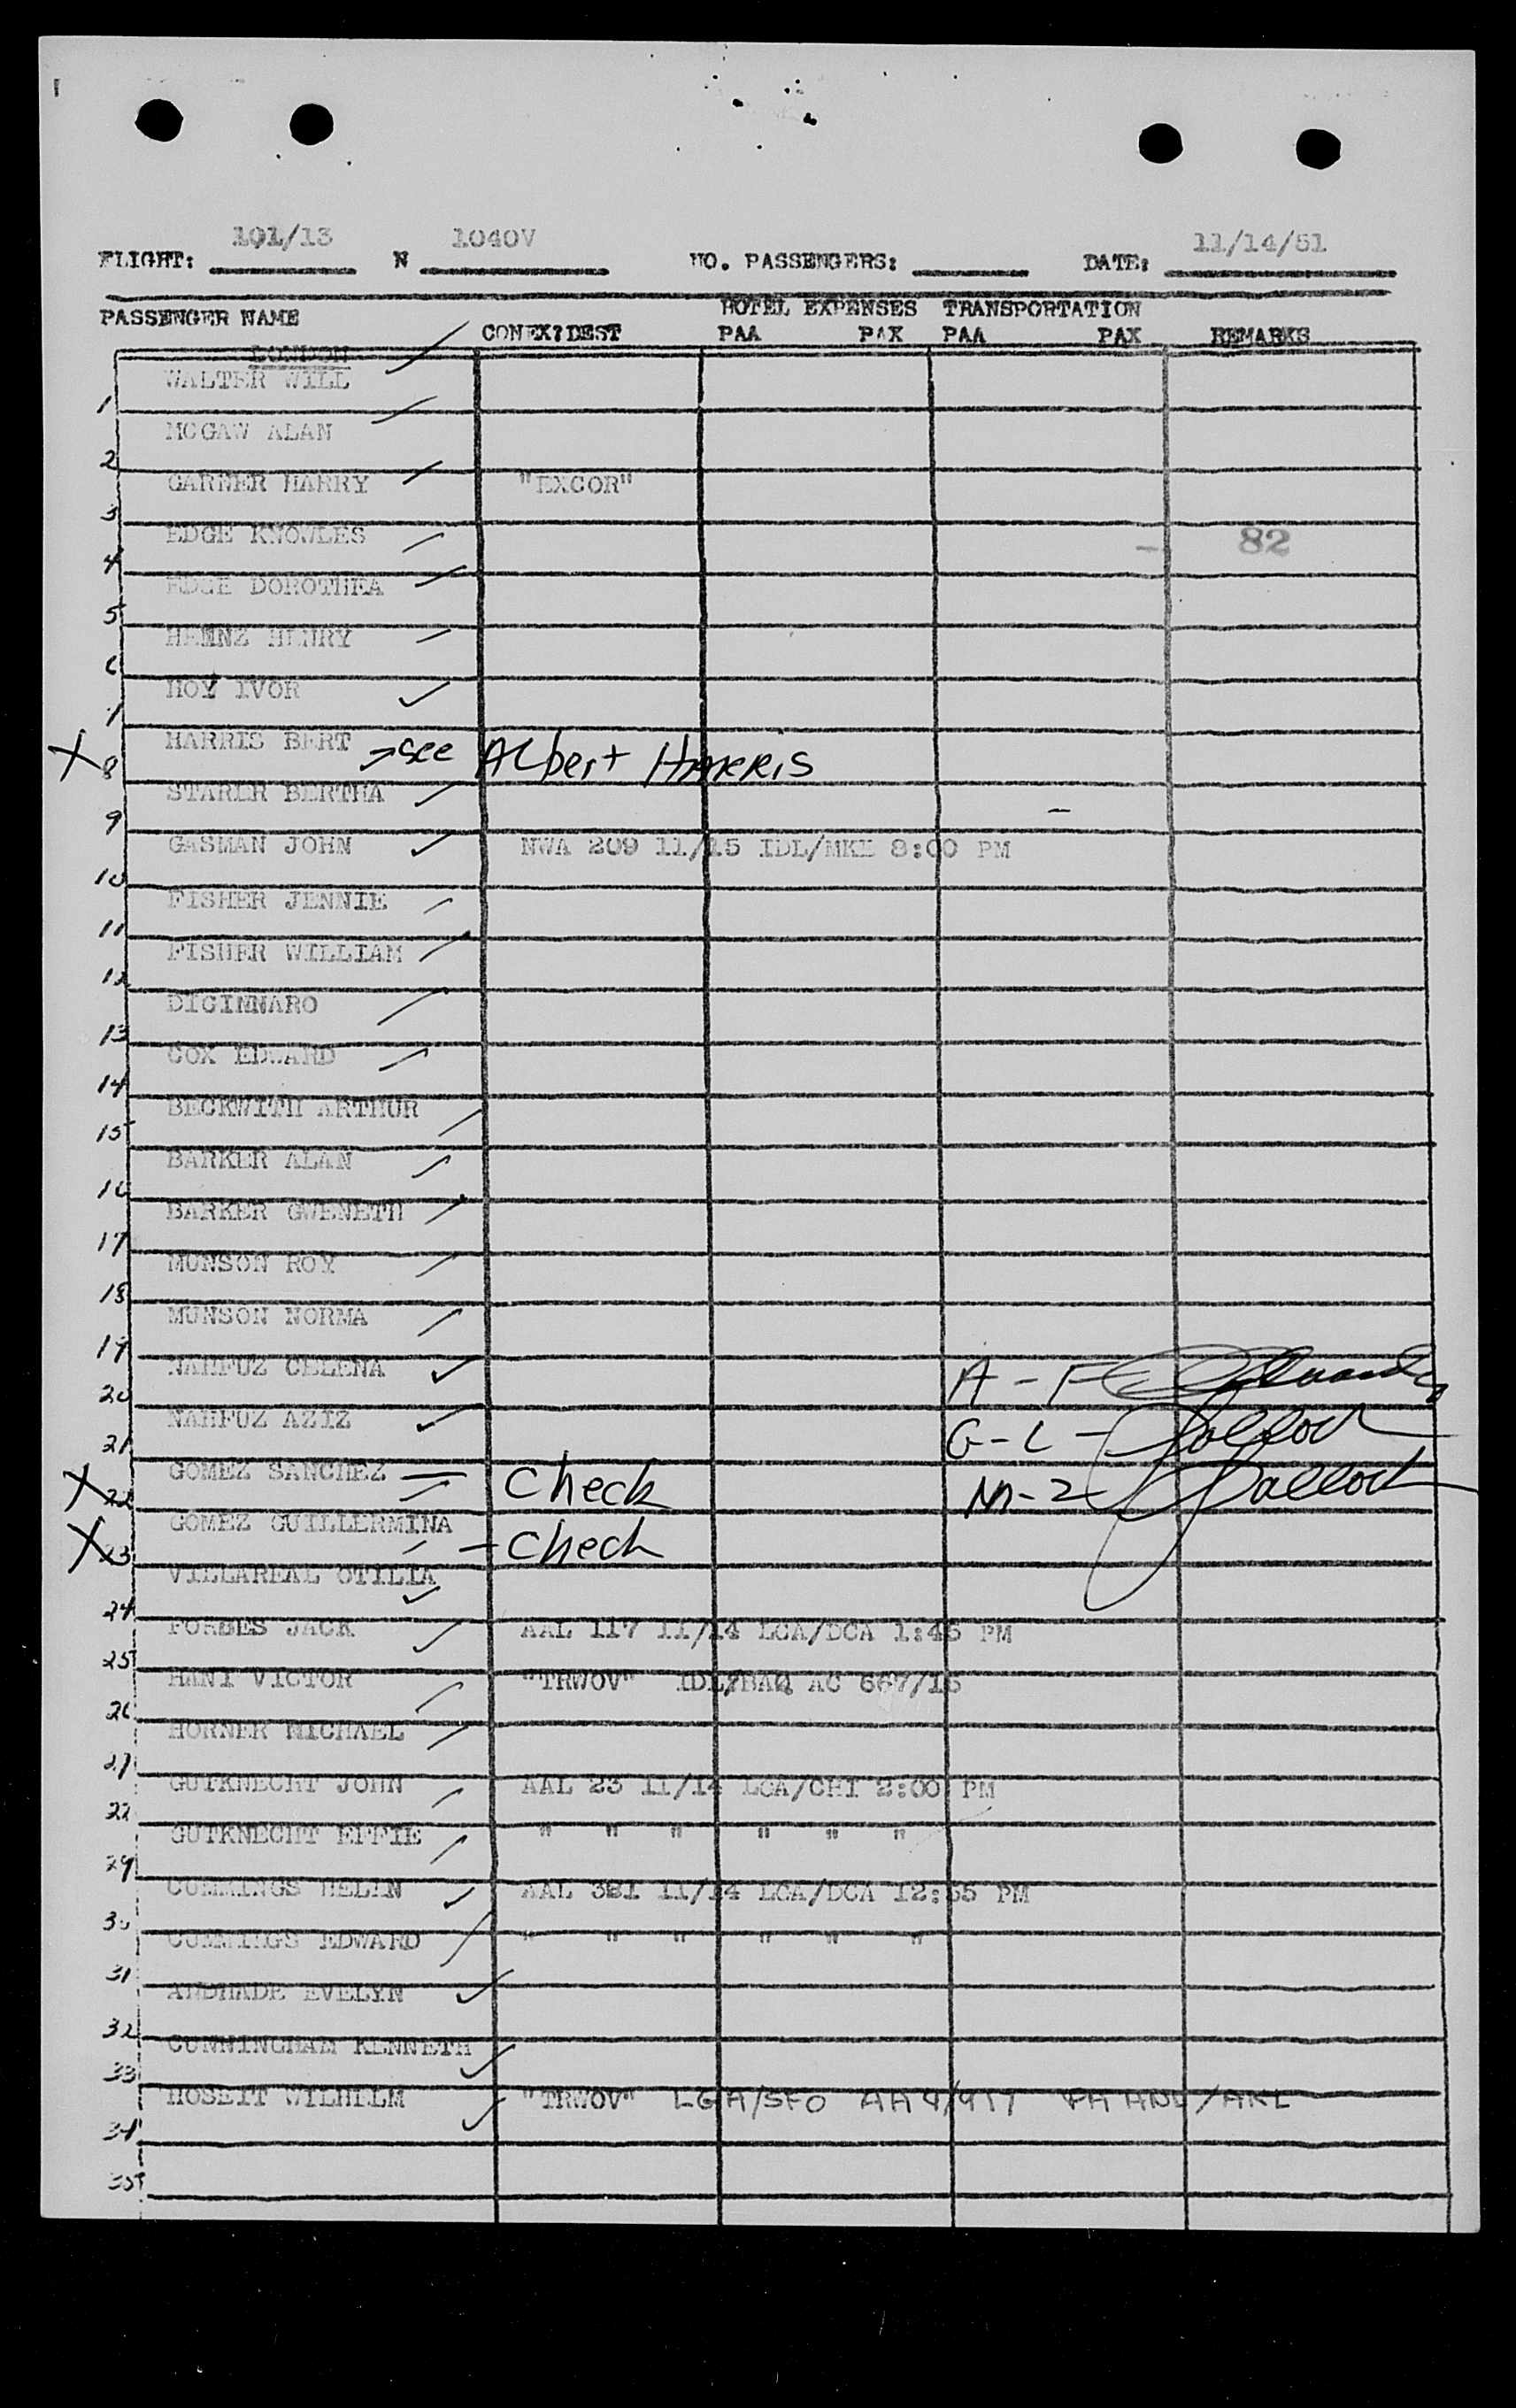 101/13 1040V 11/14/51
FLIGHT: N NO. PASSENGERS: DATE:
HOTEL EXPENSES TRANSPORTATION
PASSENGER NAME CONEX?DEST PAA PAX PAA PAX REMARKS
LONDON
WALTER WILL
1
MCGAW ALAN
2
GARNER HARRY "EXCOR"
3
EDGE KNOWLES 82
4
EDGE DOROTHEA
5
HEINZ HENRY
6
HOY IVOR
7
HARRIS BERT see Albert Harris
X 8
STARER BERTHA
9
GASMAN JOHN NWA 209 11/15 IDL/MKE 8:00 PM
10
FISHER JENNIE
11
FISHER WILLIAM
12
DIGINNARO
13
COX EDWARD
14
BECKWITH ARTHUR
15
BARKER ALAN
16
BARKER GWENETH
17
MUNSON ROY
18
MUNSON NORMA
19
NAHFUZ CELENA A - F
20
NAHFUZ AZIZ G - L - Pollock
21
GOMEZ SANCHEZ — Check M-Z Pollock
X 22
GOMEZ GUILLERMINA - Check
X 23
VILLAREAL OTILIA
24
FORBES JACK AAL 117 11/14 LGA/DCA 1:45 PM
25
HANI VICTOR "TRWOV" IDL/BAQ AC 667/15
26
HORNER MICHAEL
27
GUTKNECHT JOHN AAL 23 11/14 LGA/CHI 2:00 PM
28
GUTKNECHT EFFIE " " " " " "
29
CUMMINGS HELEN AAL 381 11/14 LGA/DCA 12:55 PM
30
CUMMINGS EDWARD " " " " " "
31
ANDRADE EVELYN
32
CUNNINGHAM KENNETH
33
HOSEIT WILHELM "TRWOV" LGA/SFO AA 4/917 PA HNL/AKL
34
35